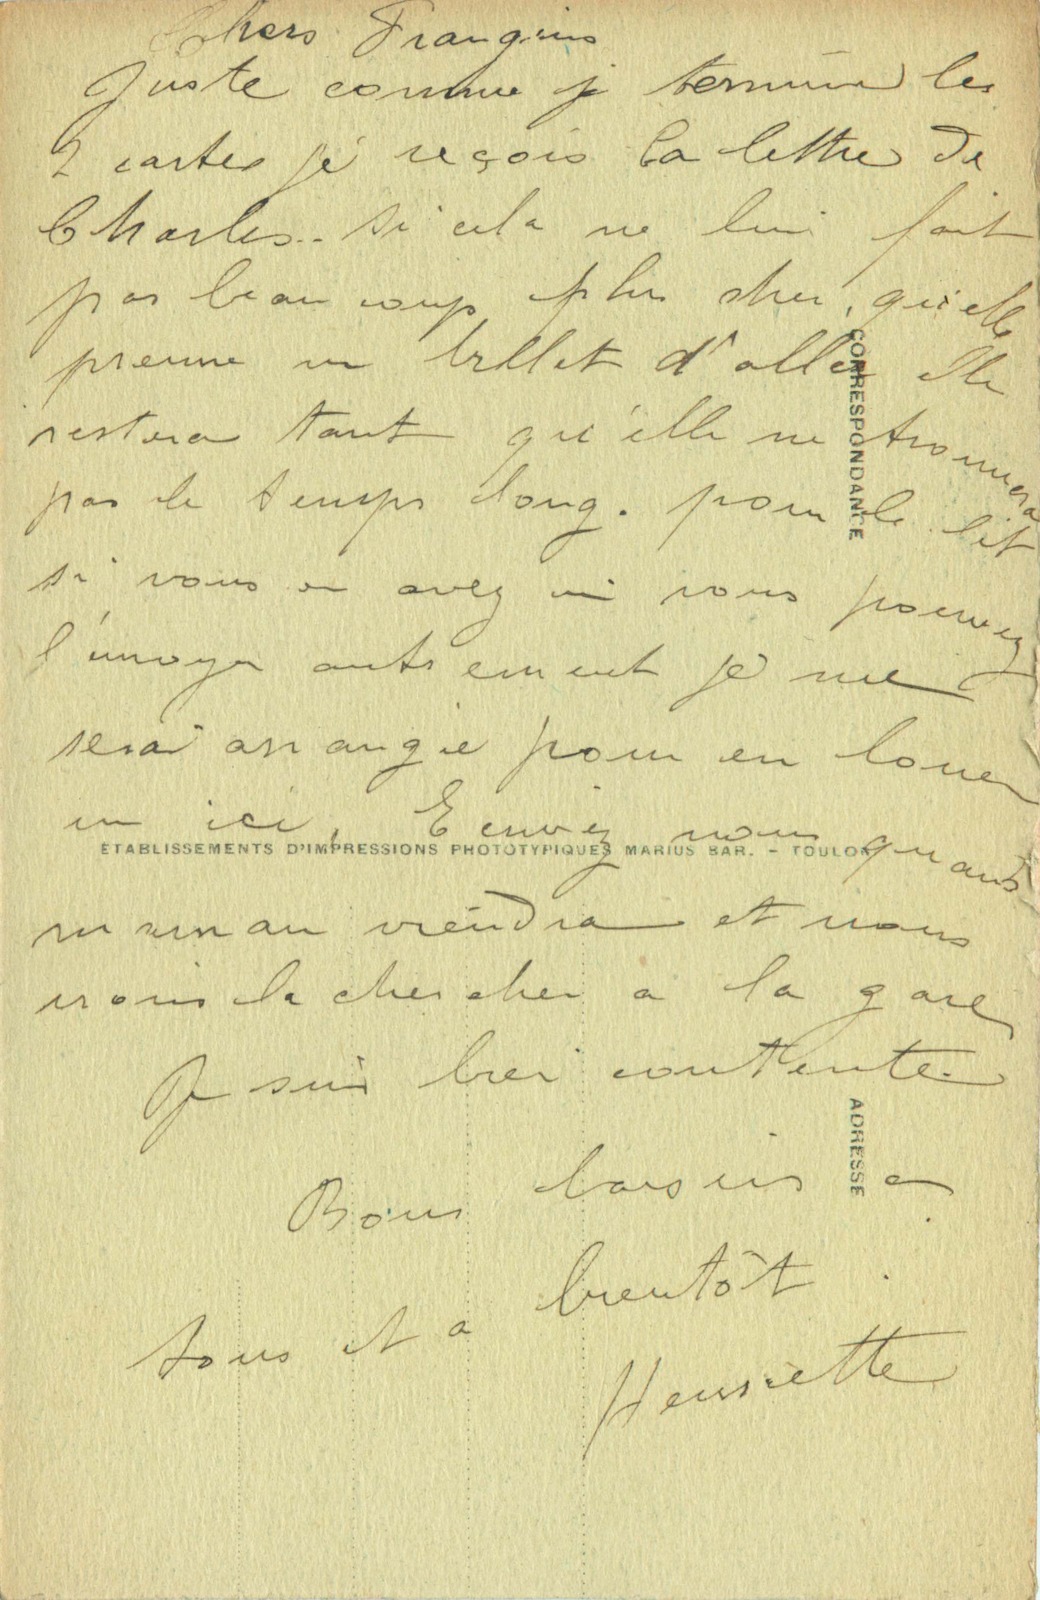 Chers Frangins
Juste comme je termine les
2 cartes je reçois la lettre de
Charles.. si cela ne lui fait
pas beaucoup plus cher, qu'elle
prenne un billet d'aller elle
restera tant qu'elle ne trouvera
pas le temps long. pour le lit
si vous en avez un vous pouvez
l'envoyer autrement je me
serai arrangée pour en louer
un ici. Ecrivez nous quand
maman viendra et nous
irons la chercher a la gare
Je suis bien contente
Bons baisers a
tous et a bientôt
Henriette
CORRESPONDANCE
ETABLISSEMENTS D'IMPRESSIONS PHOTOTYPIQUES MARIUS BAR. - TOULON
ADRESSE